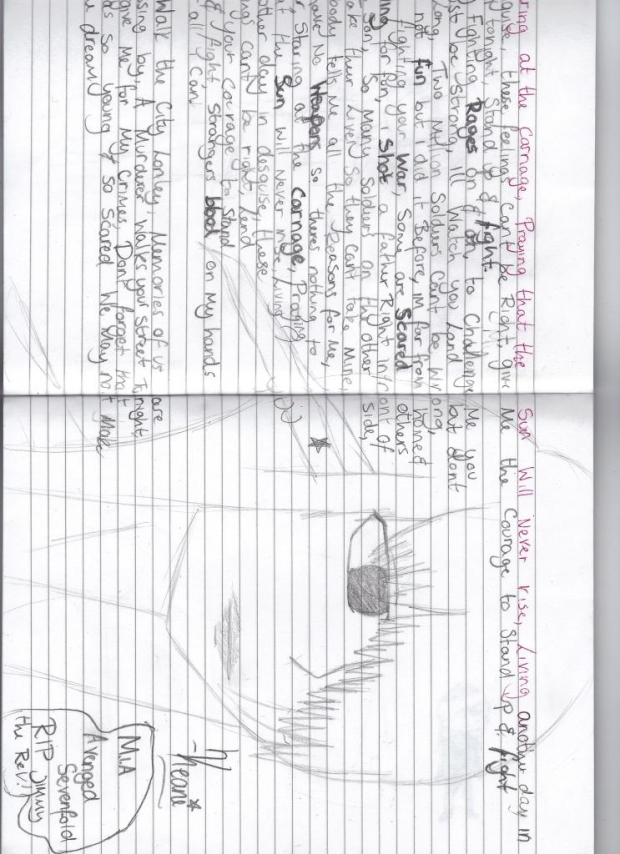 ring at the Carnage, Praying that the Sun Will Never rise, Living another day in
guise, these feelings can't be Right, give Me the Courage to Stand up & fight
tonight, Stand up & fight.
Fighting Rages on & on, to Challenge Me you
st be Strong, ill Watch you Land but dont
long Two Million Soldiers cant be wrong,
not fun but did it Before, im far from home &
fighting your War, Some are Scared others
ing for fun, i Shot a father Right infront of
Son. So Many Soldiers on the other side,
ake their Lives So they cant take Mine,
body tells Me all the Reasons for Me,
ave No Weapons so theres nothing to
Staring at the Carnage, Praying
at the Sun Will Never rise Living
other day in disguise, these
cant be right, Lend
your Courage to Stand
& fight, strangers blood on My hands
all i Can
Walk the City Lonley, Memories of us are
sing by. A Murderer Walks your Street Tonight
give Me for My Crimes, Dont forget that
s so young & so Scared We May not Make
M.I.A
Avenged
Sevenfold
RIP Jimmy
the Rev!